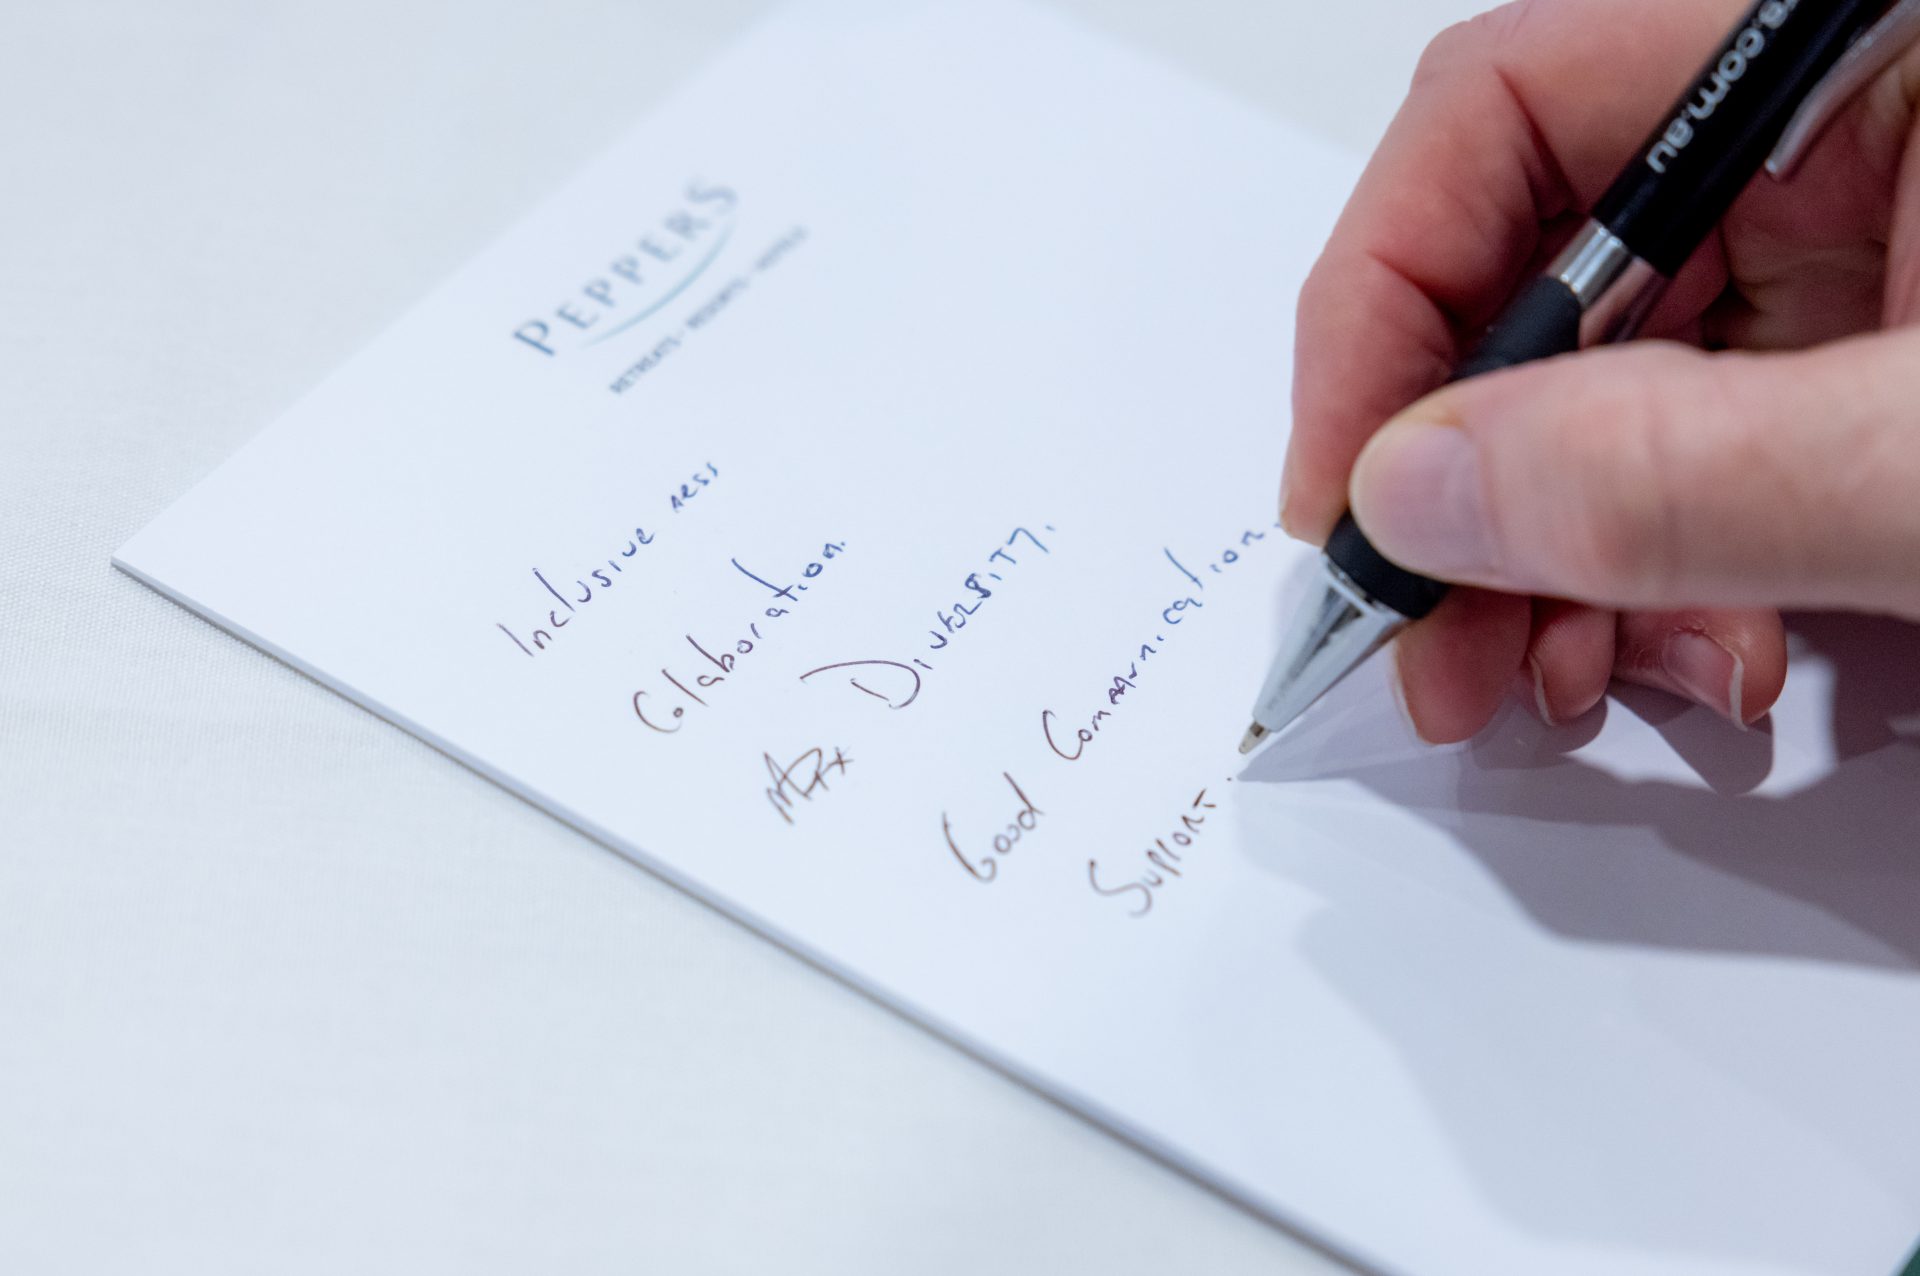 PEPPERS
RETREATS · RESORTS · HOTELS
Inclusive ness
Colaboration.
DIVERSITY.
Good Communication.
Support.
rs.com.au